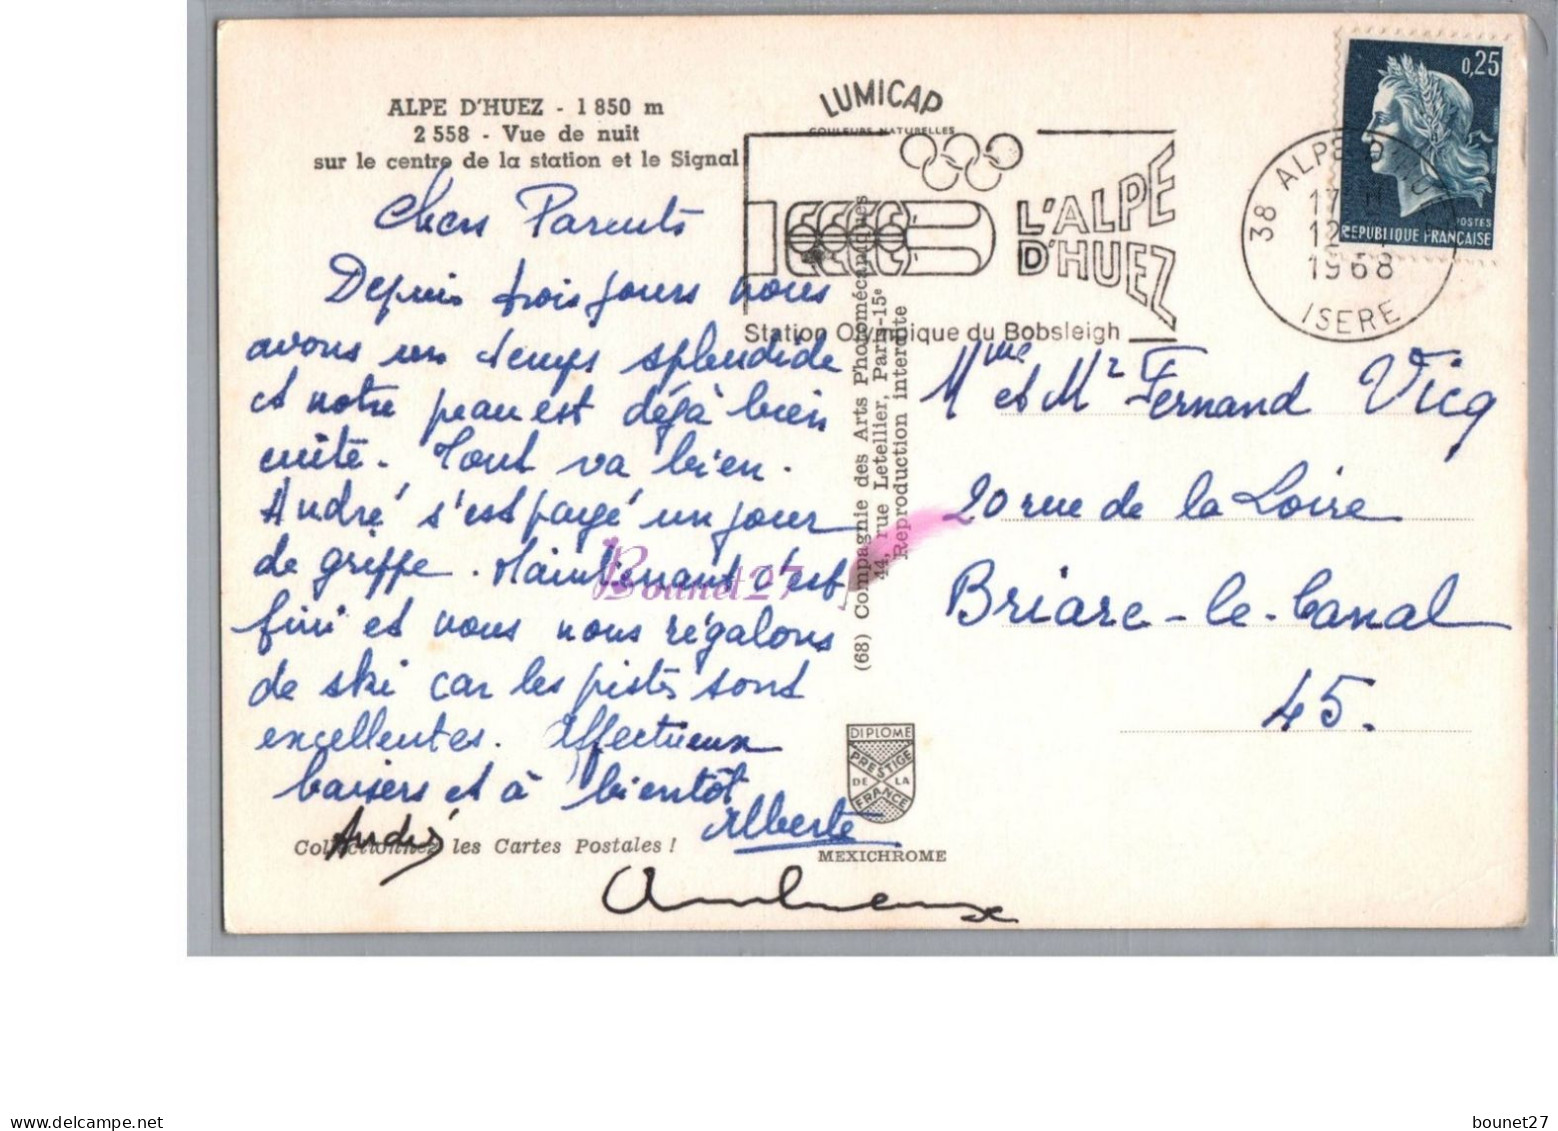 ALPE D'HUEZ - 1 850 m
2 558 - Vue de nuit
sur le centre de la station et le Signal
Chers Parents
Depuis trois jours nous
avons un temps splendide
et notre peau est déjà bien
cuite. Tout va bien.
André s'est payé un jour
de grippe. Maintenant c'est
fini et nous nous régalons
de ski car les pistes sont
excellentes. Affectueux
baisers et à bientôt
Alberte
André
Collectionnez les Cartes Postales !
LUMICAP
COULEURS NATURELLES
L'ALPE
D'HUEZ
Station Olympique du Bobsleigh
(68) Compagnie des Arts Photomécaniques
44, rue Letellier, Paris-15e
Reproduction interdite
DIPLOME
PRESTIGE
DE LA
FRANCE
MEXICHROME
0,25
POSTES
REPUBLIQUE FRANÇAISE
38 ALPE D'HUEZ
17
12
1968
ISERE
Mme et Mr Fernand Vicq
20 rue de la Loire
Briare-le-Canal
45.
Bounet27
bounet27